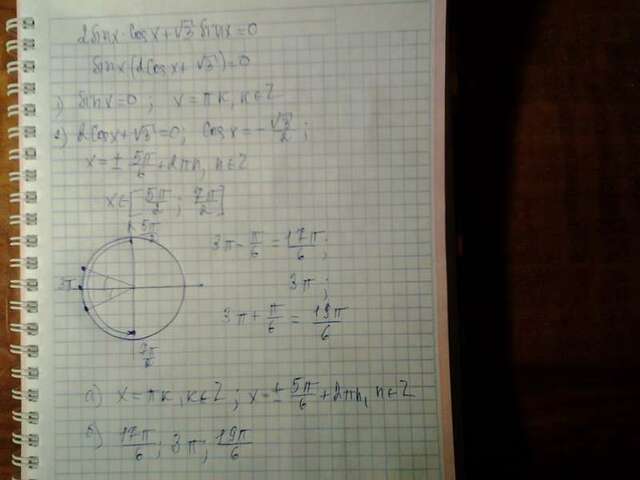 2sinx·cosx+√3 sinx=0
sinx(2cosx+√3)=0
1) sinx=0; x=πk, k∈Z
2) 2cosx+√3=0; cosx=-√3/2;
x=±5π/6+2πn, n∈Z
x∈[5π/2; 7π/2]
5π/2
3π-π/6=17π/6;
3π
3π;
3π+π/6=19π/6
7π/2
а) x=πk, k∈Z; x=±5π/6+2πn, n∈Z
б) 17π/6; 3π; 19π/6